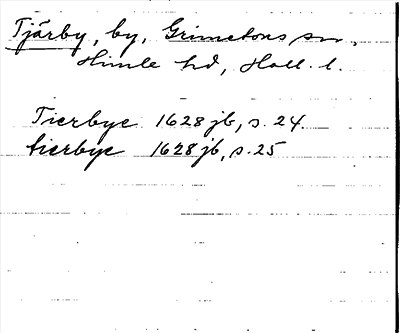 Tjärby, by, Grimetons sn,
Himle hd, Hall. l.
Tierbye 1628 jb, s. 24.
tierbye 1628 jb, s. 25